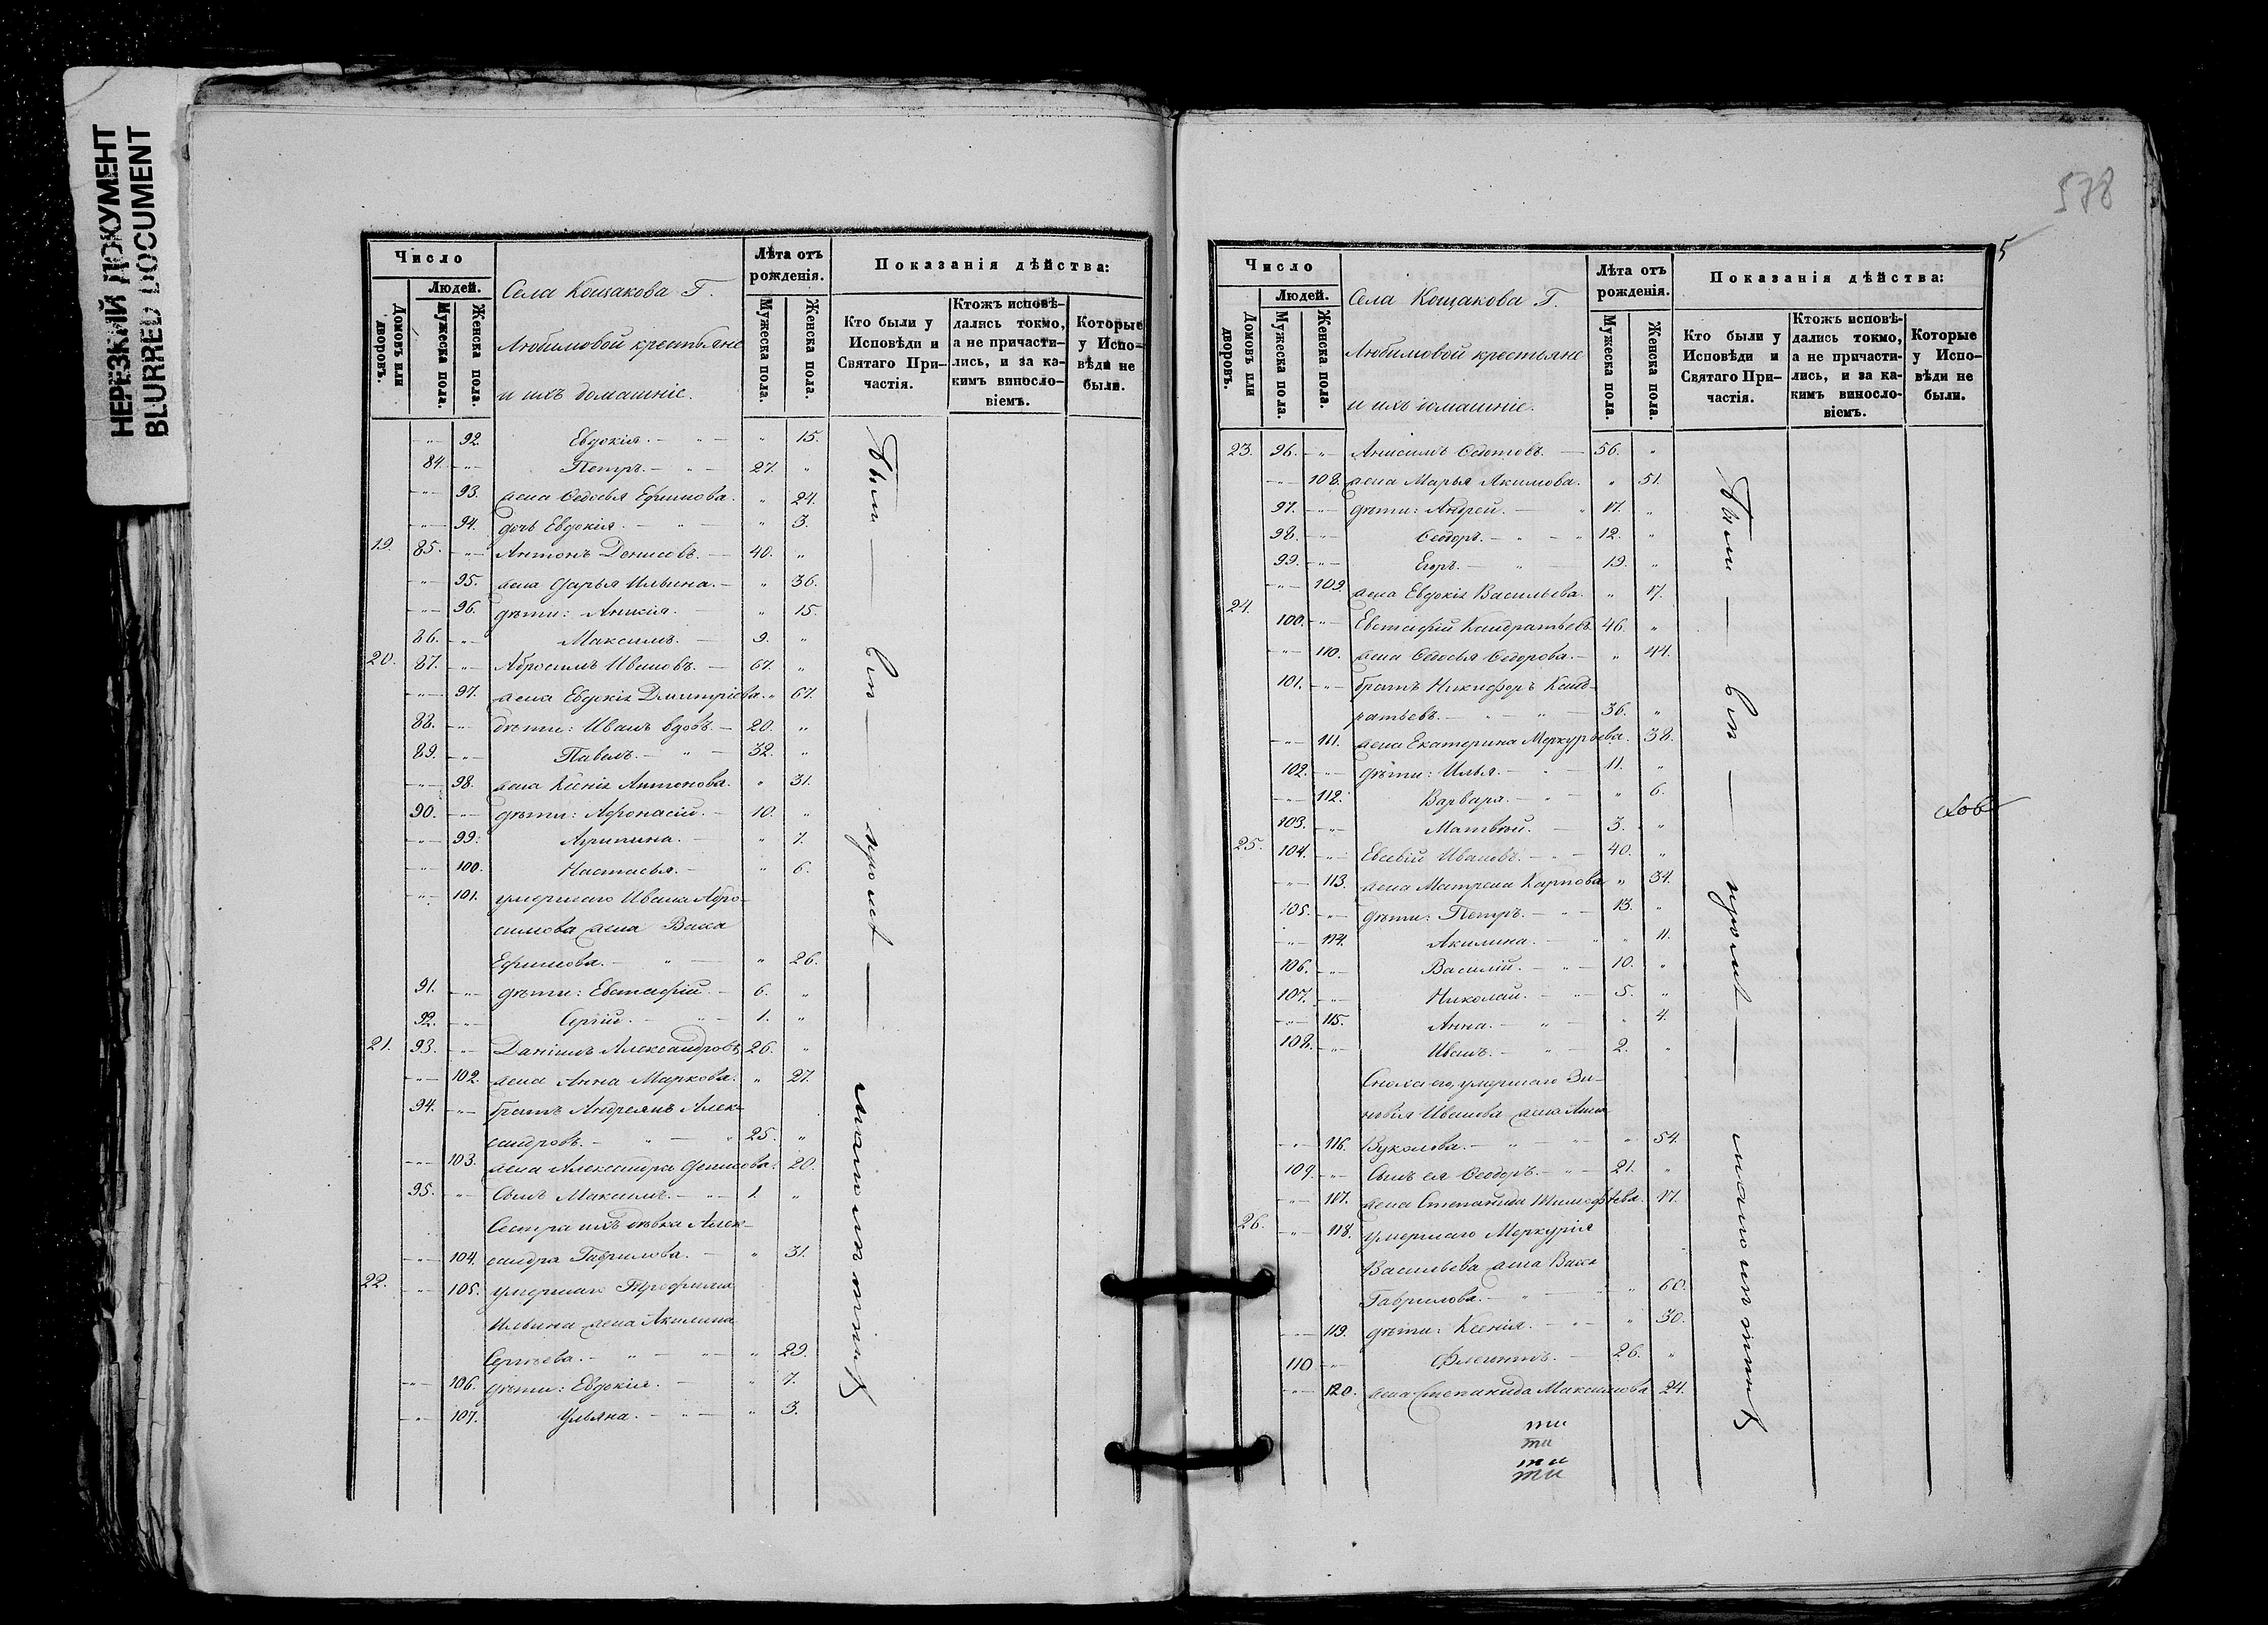 НЕРЕЗКИЙ ДОКУМЕНТ
BLURRED DOCUMENT
Число
Людей.
Домовъ или дворовъ.
Мужеска пола.
Женска пола.
Села Кощакова Г.
Любимовой крестьяне
и ихъ домашніе.
Лѣта отъ рожденія.
Мужеска пола.
Женска пола.
Показанія дѣйства:
Кто были у Исповѣди и Святаго Причастія.
Ктожъ исповѣдались токмо, а не причастились, и за какимъ винословіемъ.
Которые у Исповѣди не были.
-"- 92. Евдокія. - " - " 15.
84. -"- Петръ. - " - 27. "
-"- 93. жена Федосья Ефимова. " 24.
-"- 94. дочь Евдокія. - " - " 3.
19. 85. -"- Антонъ Денисовъ. - 40. "
-"- 95. жена Дарья Ильина. - " 36.
-"- 96. дѣти: Аникія. - " 15.
86. -"- Максимъ. - 9. "
20. 87. -"- Абросимъ Ивановъ. - 67. "
-"- 97. жена Евдокія Дмитріева. " 67.
88. -"- дѣти: Иванъ вдовъ. - 20. "
89. -"- Павелъ. - " - 32. "
-"- 98. жена Ксенія Антонова. " 31.
90. -"- дѣти: Афонасій. - 10. "
-"- 99. Агрипина. - " 7.
-"- 100. Настасья. - " 6.
-"- 101. умершаго Ивана Абро-
симова жена Васса
Ефимова. - " - " 26.
91. -"- дѣти: Евстафій. - 6. "
92. -"- Сергій. - " - 1. "
21. 93. -"- Даніилъ Александровъ 26. "
-"- 102. жена Анна Маркова. " 27.
94. -"- братъ Андреянъ Алек-
сандровъ. - " - " 25. "
-"- 103. жена Александра Денисова. 20.
95. -"- Сынъ Максимъ. - " - 1. "
Сестра ихъ дѣвка Алек-
-"- 104. сандра Гаврилова. - " 31.
22. -"- 105. умершаго Трофима
Ильина жена Акилина
Сергѣева. - " - " - " 29.
-"- 106. дѣти: Евдокія. - " 7.
-"- 107. Ульяна. - " - " 3.
Были — въ —
578
5
Число
Людей.
Домовъ или дворовъ.
Мужеска пола.
Женска пола.
Села Кощакова Г.
Любимовой крестьяне
и ихъ домашніе.
Лѣта отъ рожденія.
Мужеска пола.
Женска пола.
Показанія дѣйства:
Кто были у Исповѣди и Святаго Причастія.
Ктожъ исповѣдались токмо, а не причастились, и за какимъ винословіемъ.
Которые у Исповѣди не были.
23. 96. -"- Анисимъ Федотовъ. - 56. "
-"- 108. жена Марья Якимова. " 51.
97. -"- дѣти: Андрей. - " 17. "
98. -"- Феодоръ. - " - " 12. "
99. -"- Егоръ. - " - 19. "
-"- 109. жена Евдокія Васильева. " 17.
24. 100. -"- Евстафій Кандратьевъ 46. "
-"- 110. жена Федосья Федорова. - " 44.
101. -"- братъ Никифоръ Канд-
ратьевъ. - " - " - 36. "
-"- 111. жена Екатерина Меркурьева. 38.
102. -"- дѣти: Илья. - " - 11. "
-"- 112. Варвара. - " - " 6.
103. -"- Матвѣй. - 3. "
25. 104. -"- Евсевій Ивановъ. - " - 40. "
-"- 113. жена Матрена Карпова " 34.
105. -"- дѣти: Петръ. - " - 13. "
-"- 114. Акилина. - " " 11.
106. -"- Василій. - " - 10. "
107. -"- Николай. - " - 5. "
-"- 115. Анна. - " - " 4.
108. -"- Иванъ. - " - 2. "
Сноха его, умершаго Зи-
новья Иванова жена Анна
-"- 116. Вуколова. - " - " - " 54.
109. -"- Сынъ ея Феодоръ. - " - 21. "
-"- 117. жена Степанида Тимофѣева. 17.
26. -"- 118. умершаго Меркурія
Васильева жена Васса
Гаврилова. - " - " - " 60.
-"- 119. дѣти: Ксенія. - " - " 30.
110 -"- Флегонтъ. - 26. "
-"- 120. жена Степанида Максимова 24.
ти
ти
ти
ти
Были — въ —